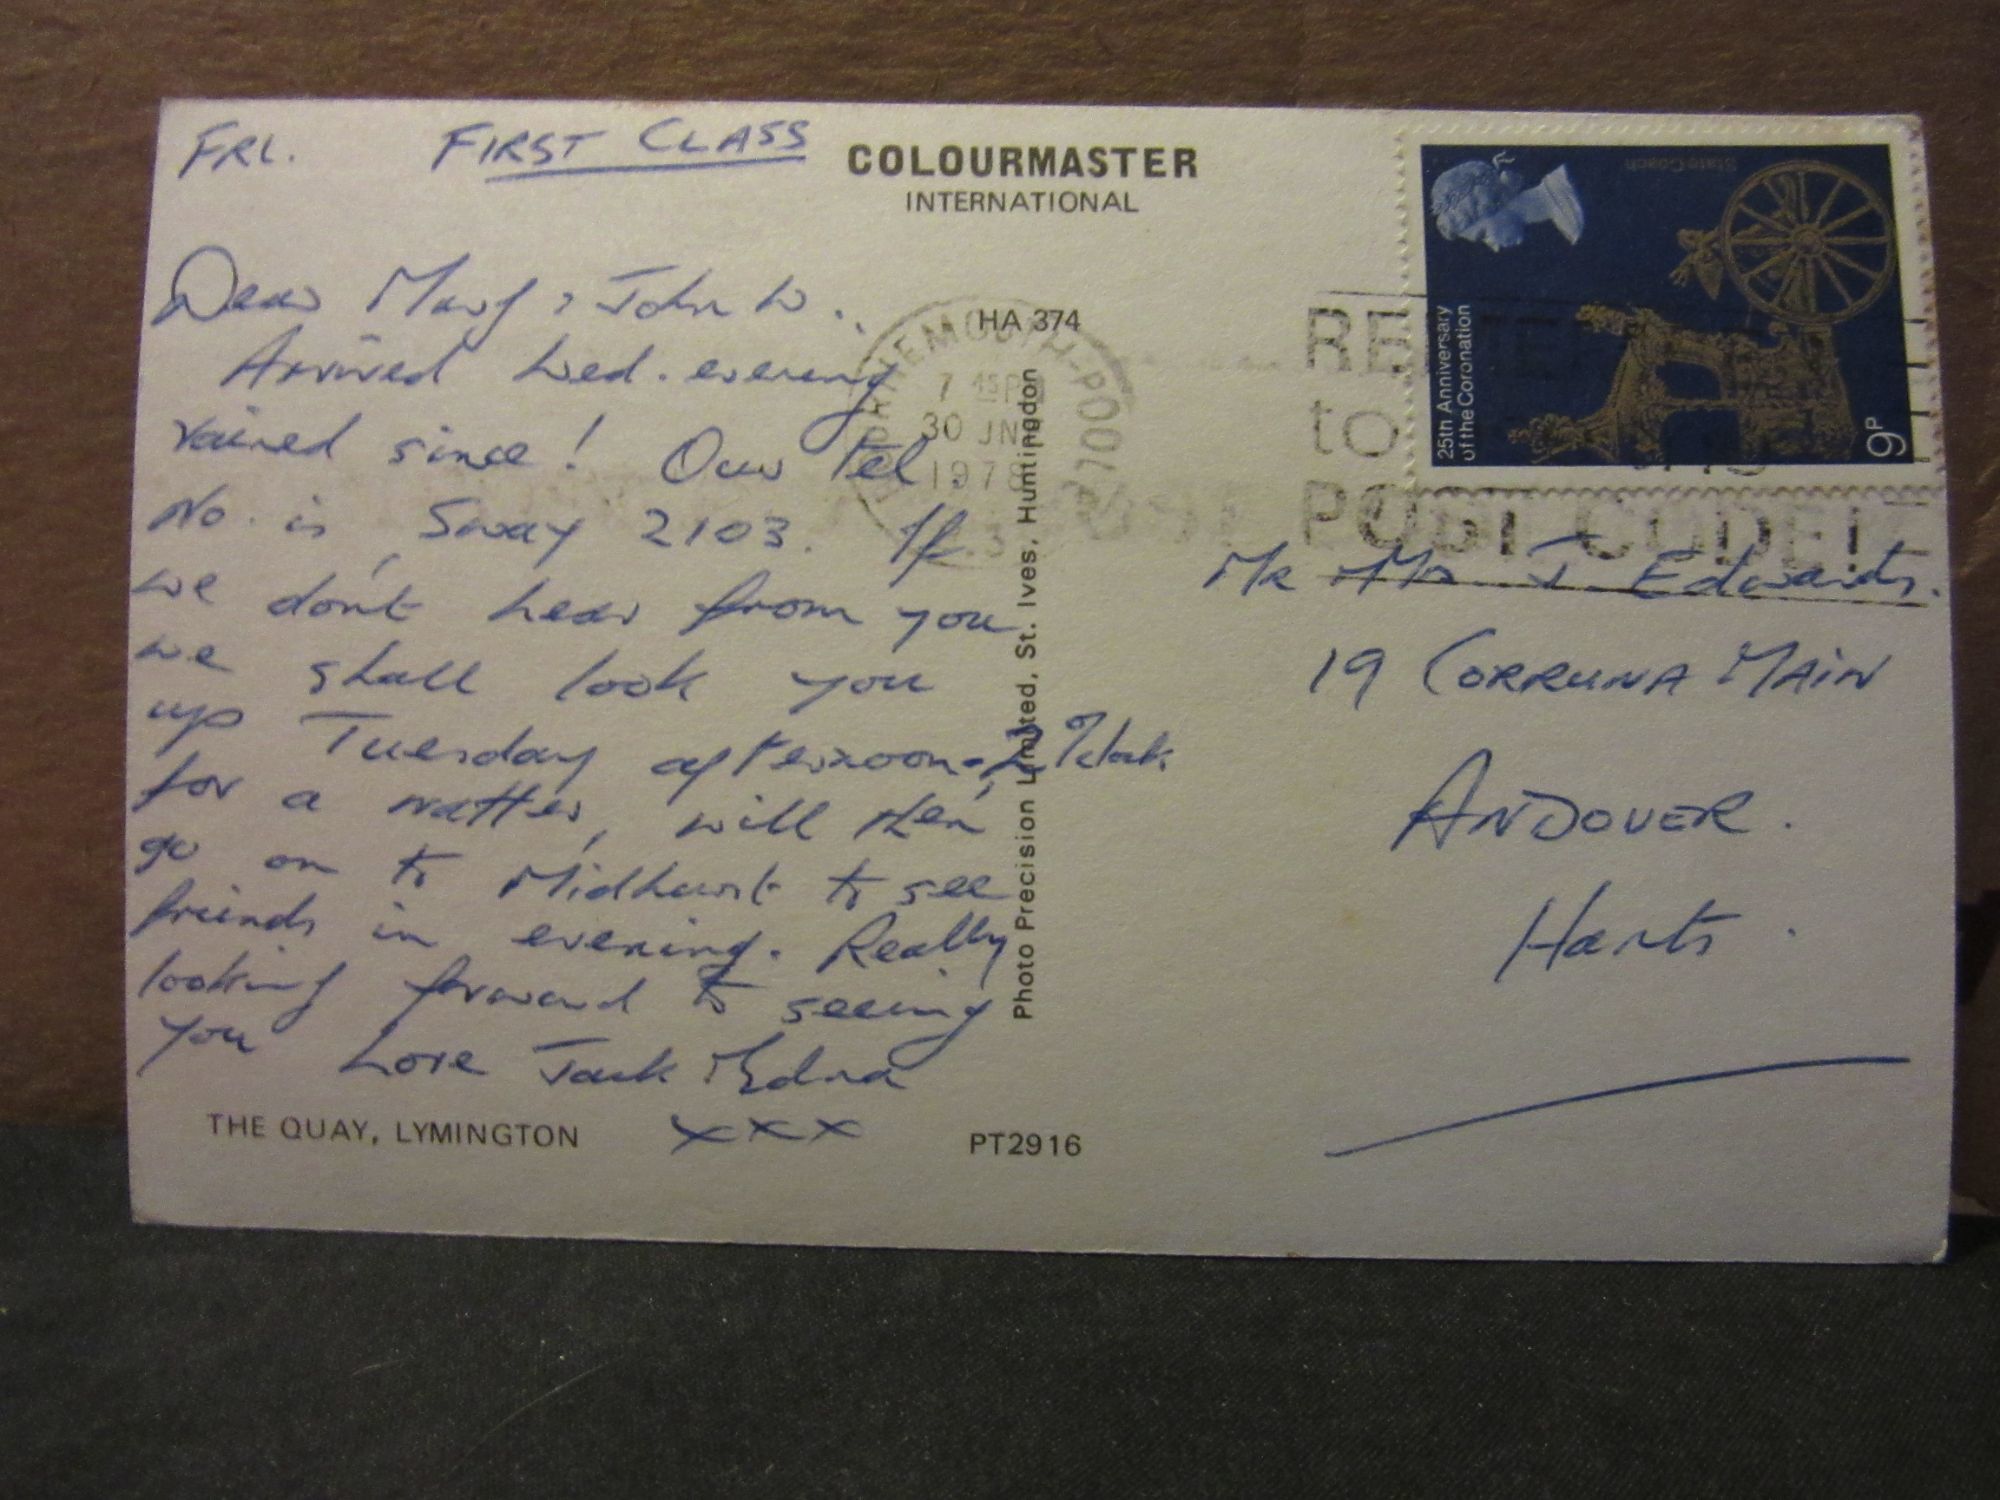 FRI. FIRST CLASS
COLOURMASTER
INTERNATIONAL
Dear Mary & John W.,
Arrived Wed. evening
rained since! Our Tel.
No. is, Sway 2103. If
we don't hear from you
we shall look you
up Tuesday afternoon - 2 O'clock
for a natter, will then
go on to Midhurst to see
friends in evening. Really
looking forward to seeing
you Love Jack & Edna
xxx
THE QUAY, LYMINGTON
PT2916
HA 374
Photo Precision Limited, St. Ives, Huntingdon
BOURNEMOUTH-POOLE
7 45PM
30 JNE
1978
to
POST CODE
State Coach
25th Anniversary
of the Coronation
9P
Mr Mrs J. Edwards.
19 CORRUNA MAIN
ANDOVER.
Hants.